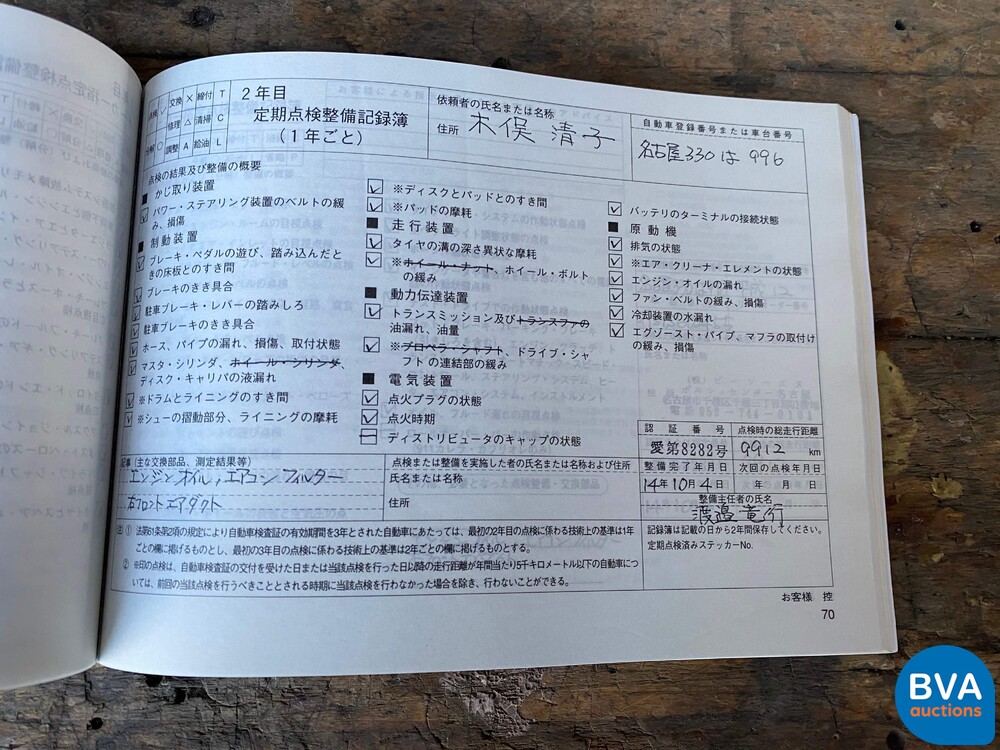 点検 ✓ 交換 × 締付 T
修理 △ 清掃 C
分解 ○ 調整 A 給油 L
2年目
定期点検整備記録簿
(1年ごと)
依頼者の氏名または名称
住所
木俣 清子
自動車登録番号または車台番号
名古屋330は996
点検の結果及び整備の概要
■ かじ取り装置
パワー・ステアリング装置のベルトの緩
み、損傷
■ 制動装置
ブレーキ・ペダルの遊び、踏み込んだと
きの床板とのすき間
ブレーキのきき具合
駐車ブレーキ・レバーの踏みしろ
駐車ブレーキのきき具合
ホース、パイプの漏れ、損傷、取付状態
マスタ・シリンダ、ホイール・シリンダ、
ディスク・キャリパの液漏れ
※ドラムとライニングのすき間
※シューの摺動部分、ライニングの摩耗
※ディスクとパッドとのすき間
※パッドの摩耗
■ 走行装置
タイヤの溝の深さ異状な摩耗
※ホイール・ナット、ホイール・ボルト
の緩み
■ 動力伝達装置
トランスミッション及びトランスファの
油漏れ、油量
※プロペラ・シャフト、ドライブ・シャ
フトの連結部の緩み
■ 電気装置
点火プラグの状態
点火時期
ディストリビュータのキャップの状態
バッテリのターミナルの接続状態
■ 原動機
排気の状態
※エア・クリーナ・エレメントの状態
エンジン・オイルの漏れ
ファン・ベルトの緩み、損傷
冷却装置の水漏れ
エグゾースト・パイプ、マフラの取付け
の緩み、損傷
記事 (主な交換部品、測定結果等)
エンジンオイル,エアコンフィルター
右フロントエアダクト
点検または整備を実施した者の氏名または名称および住所
氏名または名称
住所
認証番号
愛第8282号
点検時の総走行距離
9912 km
整備完了年月日
14年10月4日
次回の点検年月日
年 月 日
整備主任者の氏名
渡邉竜行
記録簿は記載の日から2年間保存してください。
定期点検済みステッカーNo.
注) ① 法第61条第2項の規定により自動車検査証の有効期間を3年とされた自動車にあたっては、最初の2年目の点検に係わる技術上の基準は1年
ごとの欄に掲げるものとし、最初の3年目の点検に係わる技術上の基準は2年ごとの欄に掲げるものとする。
② ※印の点検は、自動車検査証の交付を受けた日または当該点検を行った日以降の走行距離が年間当たり5千キロメートル以下の自動車につ
いては、前回の当該点検を行うべきこととされる時期に当該点検を行わなかった場合を除き、行わないことができる。
お客様 控
70
BVA
auctions